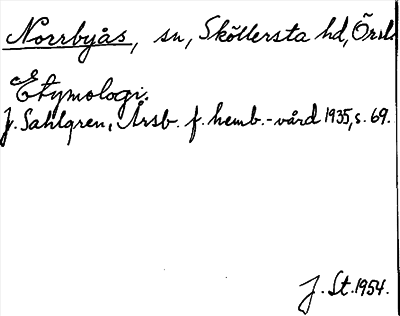 Norrbyås, sn, Sköllersta hd,
Etymologi.
J. Sahlgren, Årsb. f. hemb.-vård 1935, s. 69.
J. St. 1954.